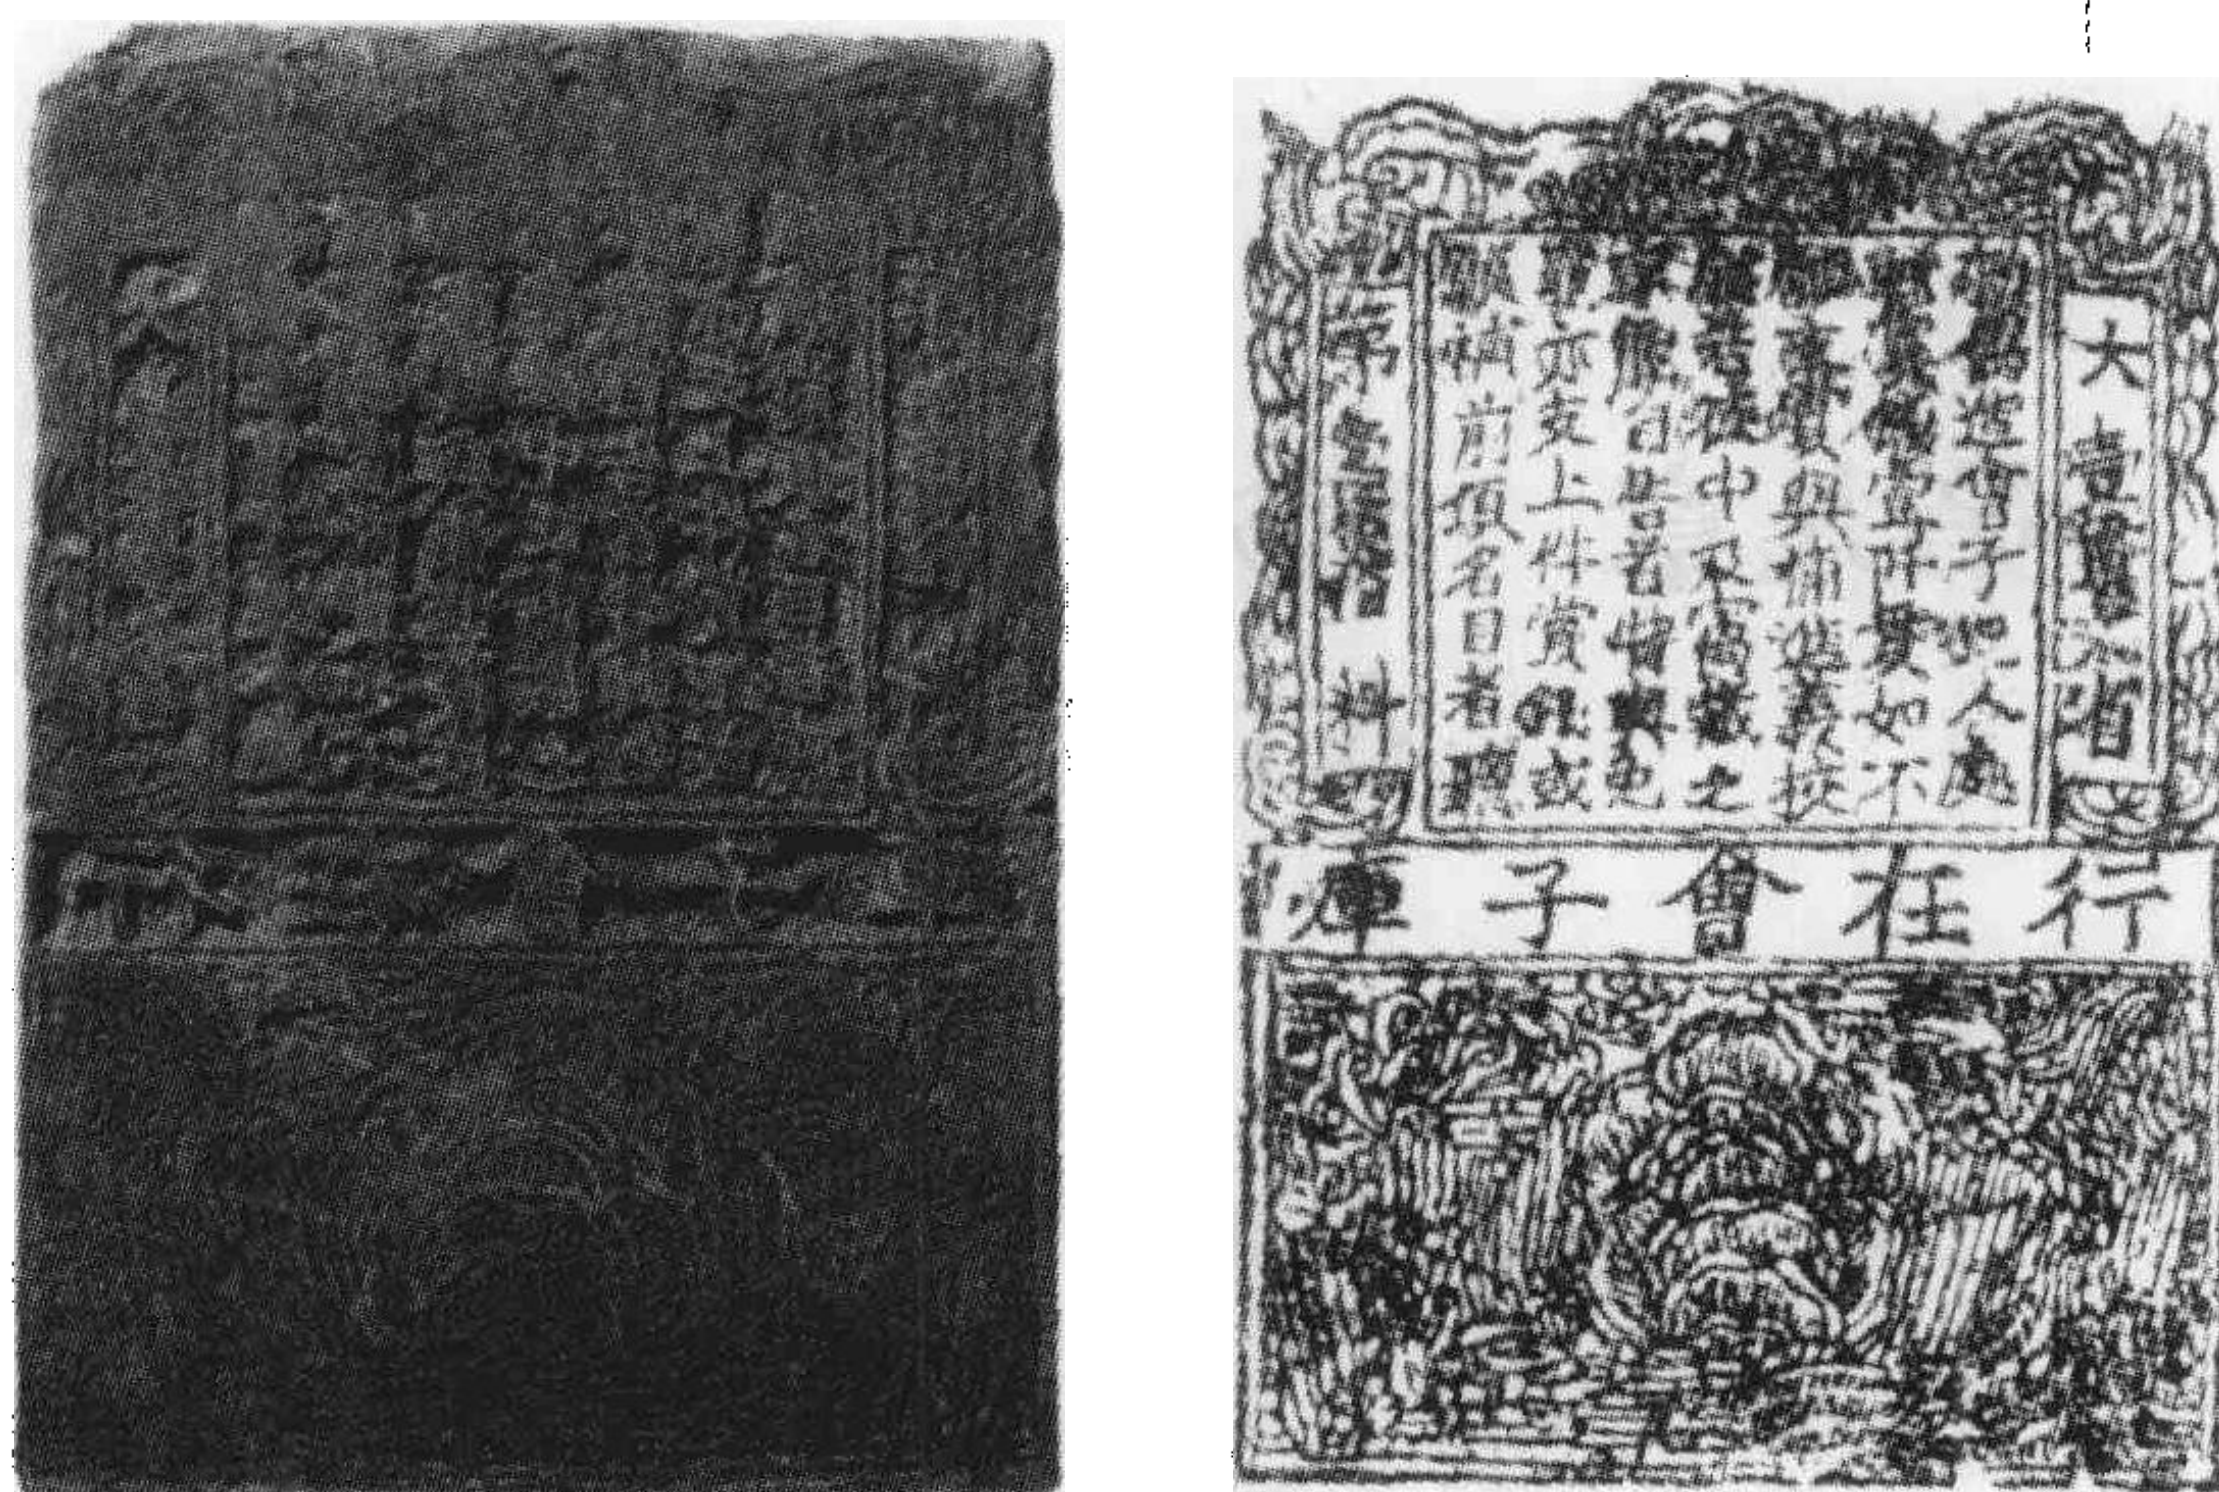 大壹貫文省
造會子犯人處
壹阡貫如不
支賞與補進義校
若徒中及窩藏之
能自告者特與免
亦支上件賞錢或
願補前項名目者聽
第 料
行在會子庫